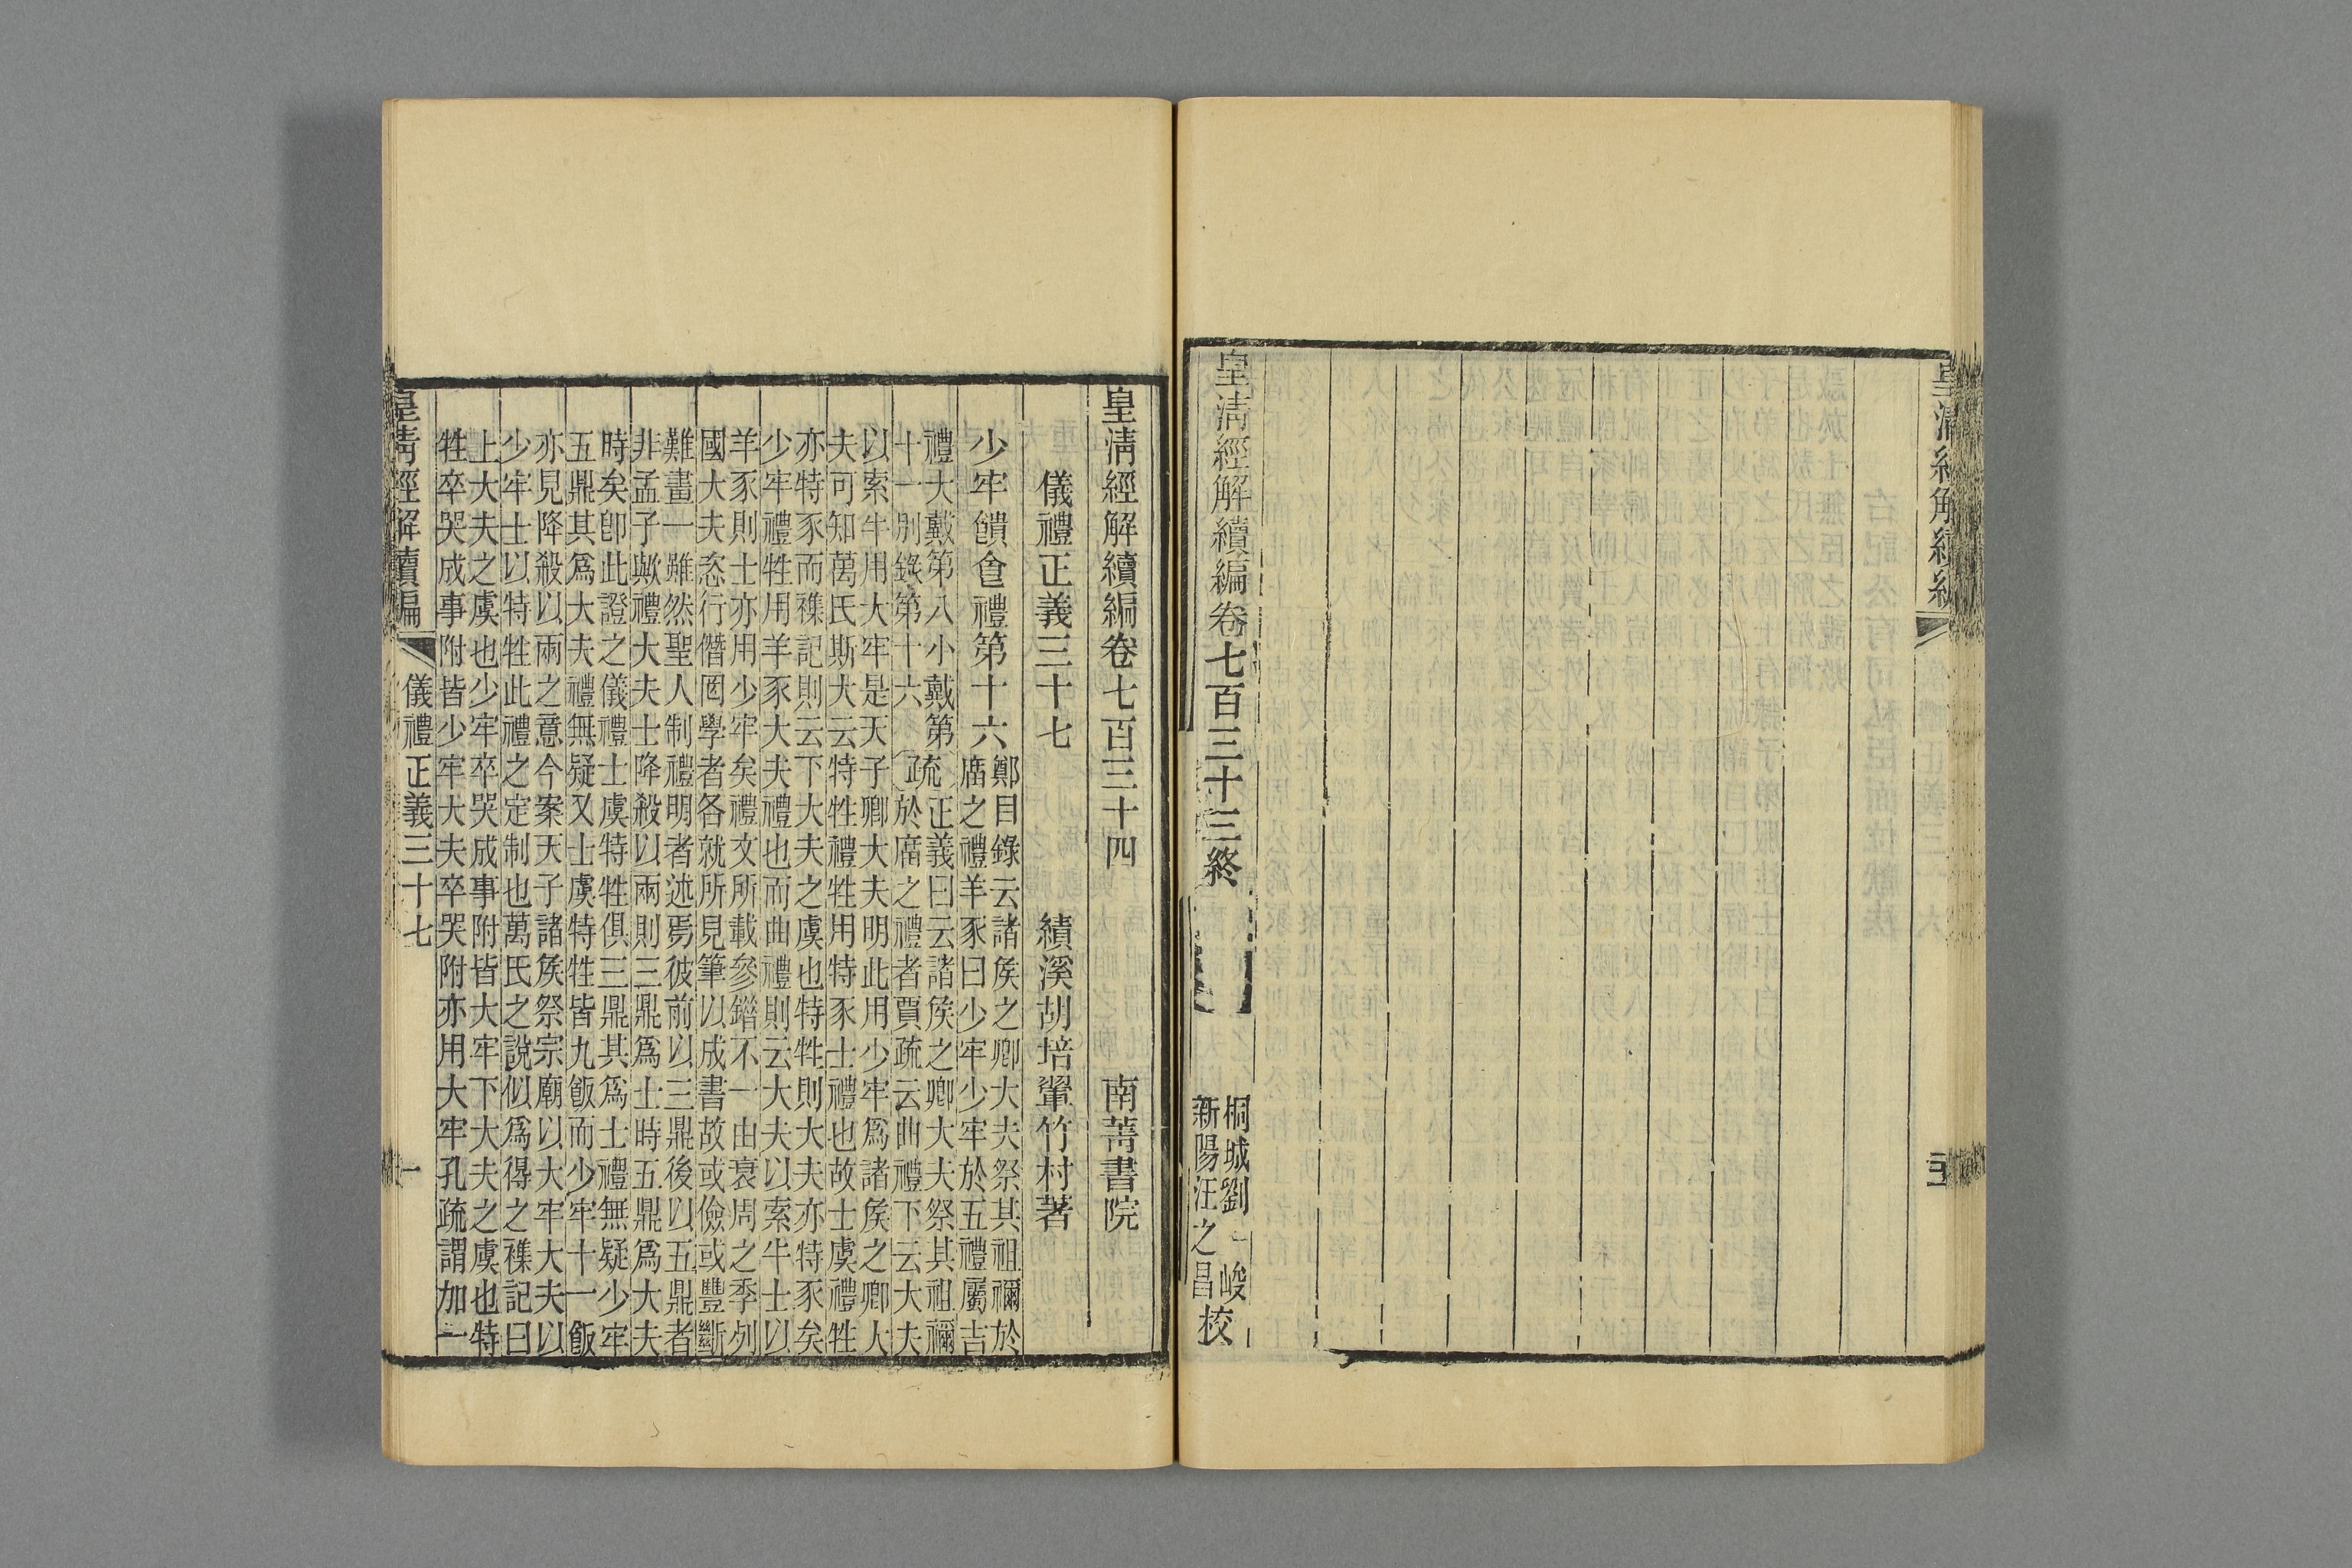 皇清經解續編
皇清經解續編卷七百三十三終
桐城劉峻
新陽汪之昌校
皇清經解續編卷七百三十四 南菁書院
儀禮正義三十七 績溪胡培翬竹村著
少牢饋食禮第十六
鄭目錄云諸矦之卿大夫祭其祖禰於
廟之禮羊豕曰少牢少牢於五禮屬吉
禮大戴第八小戴第
十一別錄第十六
疏正義曰云諸矦之卿大夫祭其祖禰
於廟之禮者賈疏云曲禮下云大夫
以索牛用大牢是天子卿大夫明此用少牢爲諸矦之卿大
夫可知萬氏斯大云特牲禮牲用特豕士禮也故士虞禮牲
亦特豕而襍記則云下大夫之虞也特牲則大夫亦特豕矣
少牢禮牲用羊豕大夫禮也而曲禮則云大夫以索牛士以
羊豕則士亦用少牢矣禮文所載參錯不一由衰周之季列
國大夫恣行僭罔學者各就所見筆以成書故或儉或豐斷
難畫一雖然聖人制禮明者述焉彼前以三鼎後以五鼎者
非孟子歟禮大夫士降殺以兩則三鼎爲士時五鼎爲大夫
時矣卽此證之儀禮士虞特牲俱三鼎其爲士禮無疑少牢
五鼎其爲大夫禮無疑又士虞特牲皆九飯而少牢十一飯
亦見降殺以兩之意今案天子諸矦祭宗廟以大牢大夫以
少牢士以特牲此禮之定制也萬氏之說似爲得之襍記曰
上大夫之虞也少牢卒哭成事附皆大牢下大夫之虞也特
牲卒哭成事附皆少牢大夫卒哭附亦用大牢孔疏謂加一
皇清經解續編 儀禮正義三十七 一